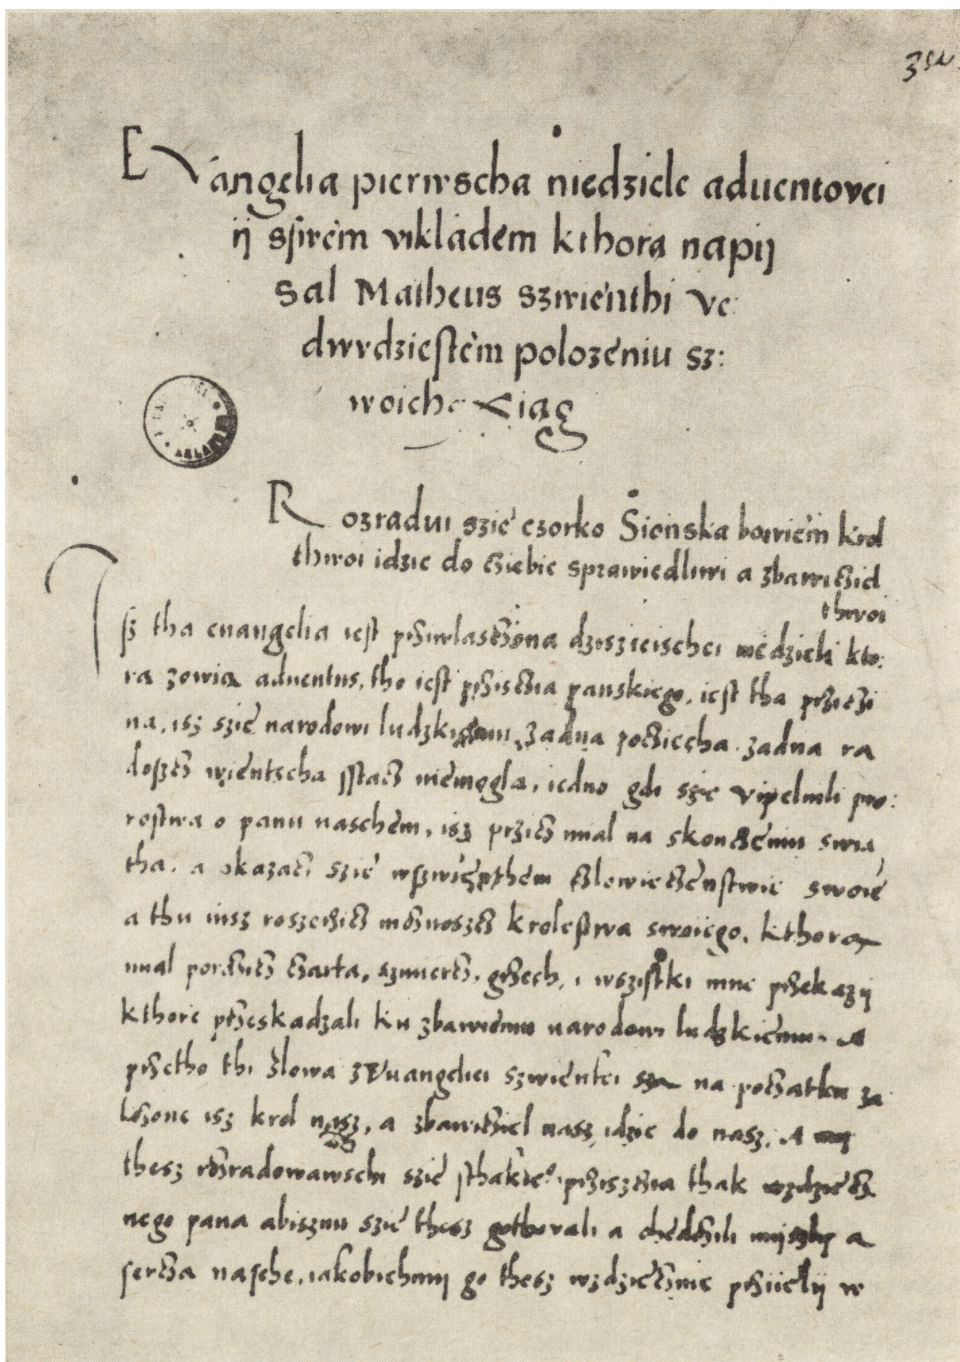 Evangelia pierwscha niedziele aduentovei
ij sswem vikladem kthora napij
sal Matheus szwienthi ve
dwvdziestem polozeniu sz:
woich xiag
Rozradui szie czorko Sienska bowiem krol
thwoi idzie do cziebie sprawiedliwi a zbawicziel
thwoi
Isz tha euangelia iest prziwlasczona dziszieischei niedzieli kto:
ra zowia aduentus, tho iest przisczia panskiego, iest tha przicżi
na, isz szie narodowi ludzkiemu żadna pocziecha żadna ra
doszcz wientscha sstacz niemogla, iedno gdi szie vipelnili pro:
roctwa o panu naschem, isz przicz mial na skonczeniu swia
tha, a okazacz szie czlowieczenstwie swoie
a thu insz roszczicz mnoszcz krolestwa swoiego, kthora
mial porczicz czarta, szmiercz, grzech, i wszistki inne przekazij
kthore przeskadzali ku zbawieniu narodowi ludzkiemu. A
przetho thi slowa zEuangeliei szwientei sza na poczatku za
lożone isz krol nasz, a zbawicziel nasz idzie do nasz, A
thesz rozradowawschi szie stakie° przisczia thak wzdziecz
nego pana abiszmi szie thesz gothovali a chedozili a
sercza nasche, iakobichmij go thesz wzdziecznie prziielij w